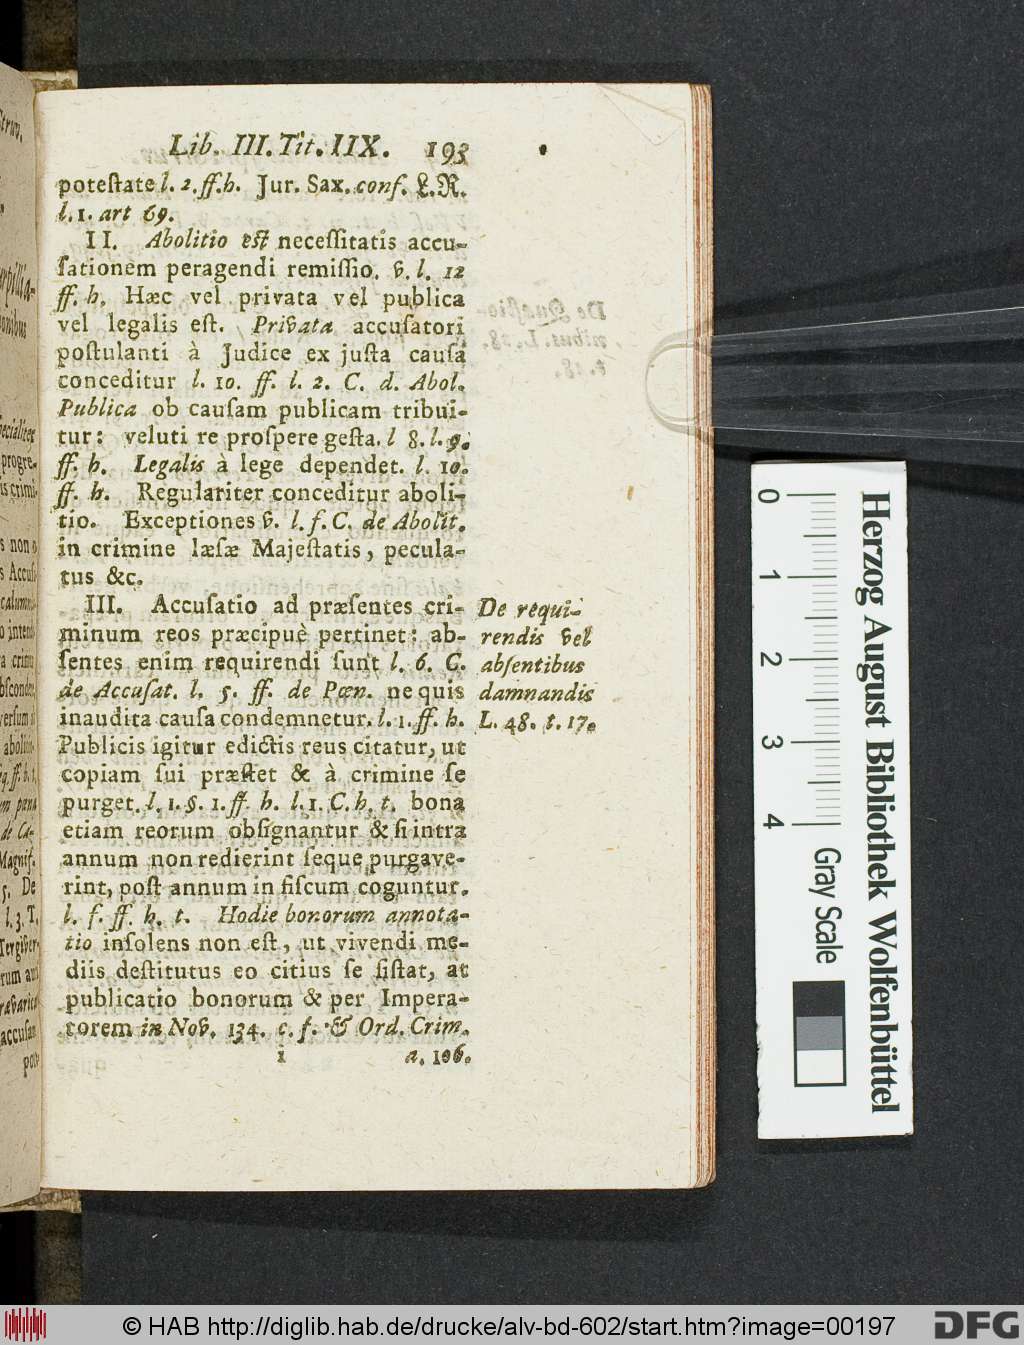 Lib. III. Tit. IIX. 193
poteſtate l. 2. ff. h. Jur. Sax. conf. L.R.
l. 1. art 69.
II. Abolitio eſt neceſſitatis accu-
ſationem peragendi remiſſio. v. l. 12
ff. h. Hæc vel privata vel publica
vel legalis eſt. Privata accuſatori
poſtulanti à Judice ex juſta cauſa
conceditur l. 10. ff. l. 2. C. d. Abol.
Publica ob cauſam publicam tribui-
tur: veluti re proſpere geſta. l 8. l. 9.
ff. h. Legalis à lege dependet. l. 10.
ff. h. Regulariter conceditur aboli-
tio. Exceptiones v. l. f. C. de Abolit.
in crimine læſæ Majeſtatis, pecula-
tus &c.
III. Accuſatio ad præſentes cri-
minum reos præcipuè pertinet: ab-
ſentes enim requirendi ſunt l. 6. C.
de Accuſat. l. 5. ff. de Pœn. ne quis
inaudita cauſa condemnetur. l. 1. ff. h.
Publicis igitur edictis reus citatur, ut
copiam ſui præſtet & à crimine ſe
purget. l. 1. §. 1. ff. h. l. 1. C. h. t. bona
etiam reorum obſignantur & ſi intra
annum non redierint ſeque purgave-
rint, poſt annum in fiſcum coguntur.
l. f. ff. h. t. Hodie bonorum annota-
tio inſolens non eſt, ut vivendi me-
diis deſtitutus eo citius ſe ſiſtat, at
publicatio bonorum & per Impera-
torem in Nov. 134. c. f. & Ord. Crim.
1 a. 106.
De requi-
rendis vel
abſentibus
damnandis
L. 48. t. 17.
0 1 2 3 4
Gray Scale
Herzog August Bibliothek Wolfenbüttel
© HAB http://diglib.hab.de/drucke/alv-bd-602/start.htm?image=00197
DFG